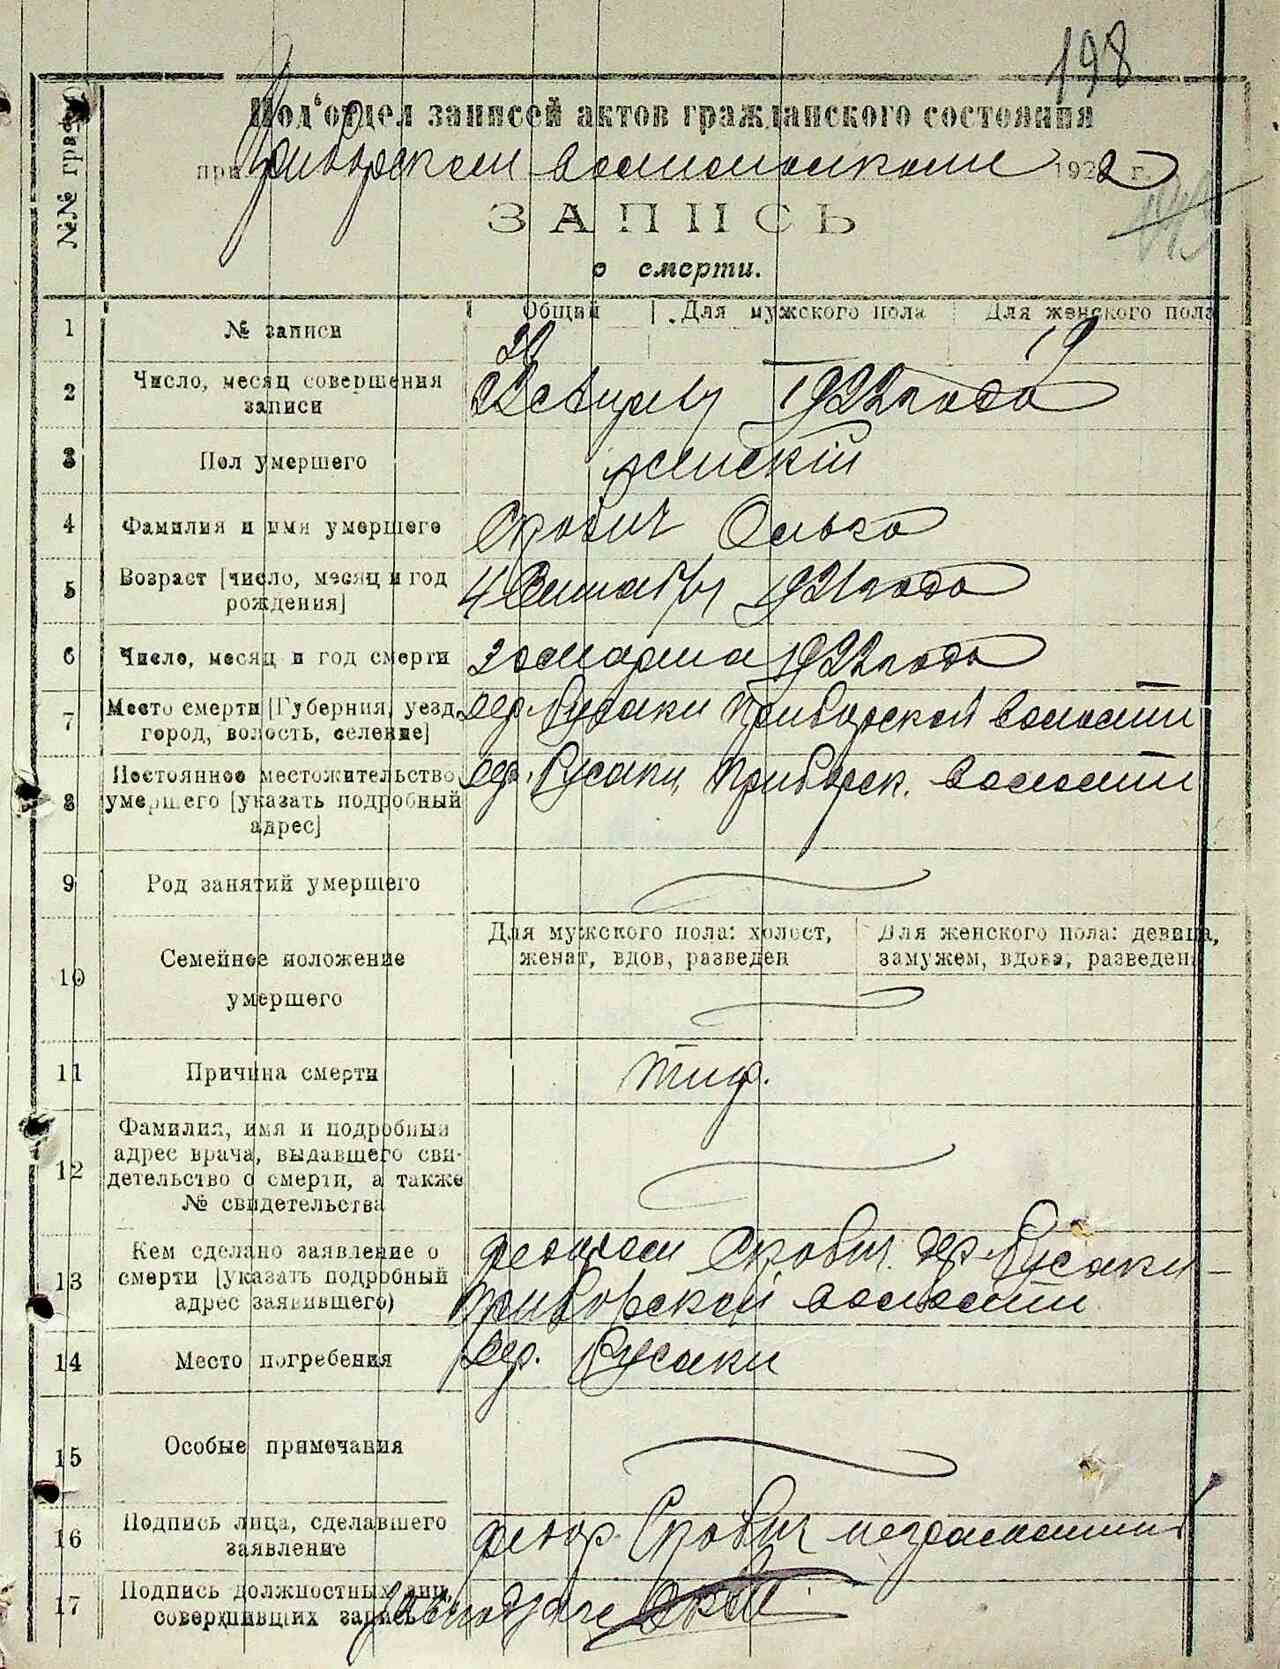 198
№№ граф
Под'отдел записей актов гражданского состояния
при Приборском волисполкоме 1922 г.
ЗАПИСЬ
о смерти.
Общий Для мужского пола Для женского пола
1 № записи 19
2 Число, месяц совершения записи 22 апреля 1922 года
3 Пол умершего женскій
4 Фамилия и имя умершего Скович Ольга
5 Возраст [число, месяц и год рождения] 4 1921 года
6 Число, месяц и год смерти 30 марта 1922 года
7 Место смерти [Губерния, уезд, город, волость, селение] дер. Русаки Приборской волости
8 Постоянное местожительство умершего [указать подробный адрес] дер. Русаки, Приборск. волости
9 Род занятий умершего
10 Семейное положение умершего
Для мужского пола: холост, женат, вдов, разведен
Для женского пола: девица, замужем, вдова, разведена
11 Причина смерти тиф.
12 Фамилия, имя и подробный адрес врача, выдавшего свидетельство о смерти, а также № свидетельства
13 Кем сделано заявление о смерти [указать подробный адрес заявившего) Скович. дер. Русаки
Приборской волости
14 Место погребения дер. Русаки
15 Особые примечания
16 Подпись лица, сделавшего заявление федор Скович неграмотный
17 Подпись должностных лиц, совершивших запись